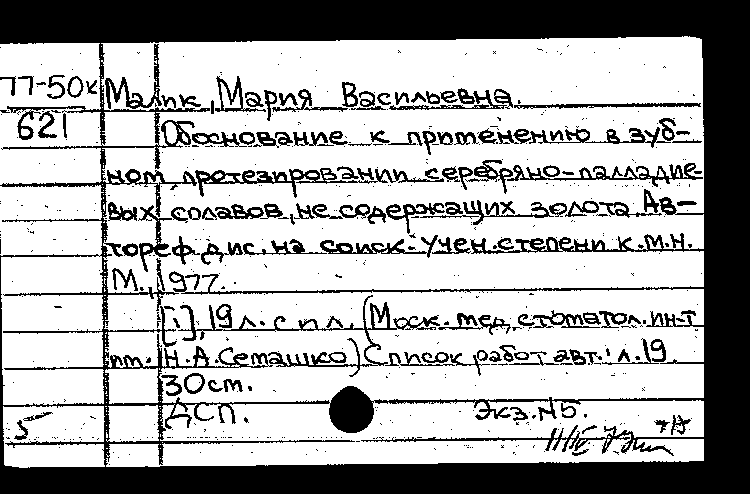 77-50к Малик, Мария Васильевна.
621 Обоснование к применению в зуб-
ном протезировании серебряно-палладие
вых сплавов, не содержащих золота. Ав-
тореф. дис. на соиск. учен. степени к.м.н.
М., 1977.
[1], 19 л. с ил. (Моск. мед. стоматол. ин-т
им. Н.А. Семашко) Список работ авт.: л. 19.
30 см.
ДСП. Экз. №5.
5